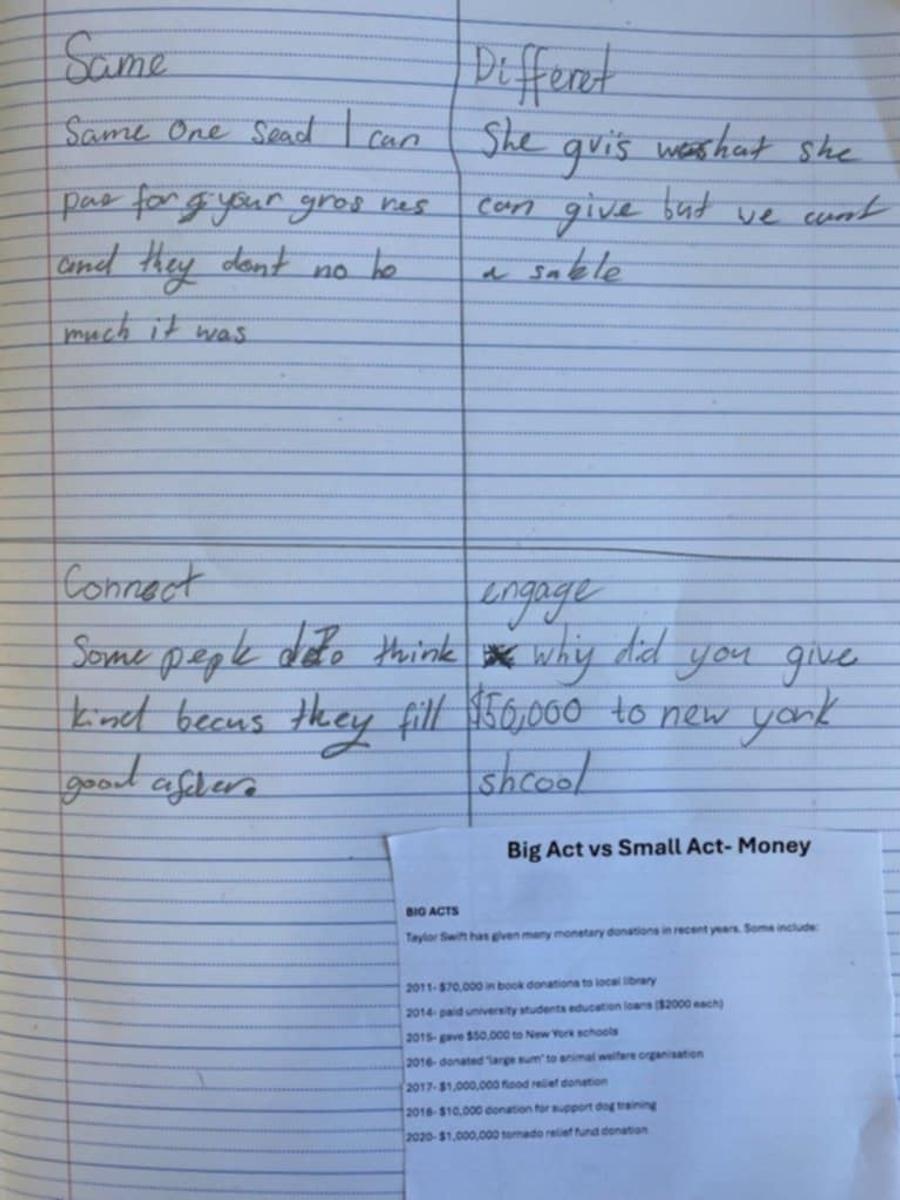 Same
Same One Sead I can
pae for your gros nes
and they dont no ho
much it was
Differet
She gviis what she
can give but we cant
a sable
Connect
Some pepk do think
kind becus they fill
good afder.
engage
why did you give
$50,000 to new york
shcool
Big Act vs Small Act- Money
BIG ACTS
Taylor Swift has given many monetary donations in recent years. Some include:
2011- $70,000 in book donations to local library
2014- paid university students education loans ($2000 each)
2015- gave $50,000 to New York schools
2016- donated "large sum" to animal welfare organisation
2017- $1,000,000 flood relief donation
2018- $10,000 donation for support dog training
2020- $1,000,000 tornado relief fund donation